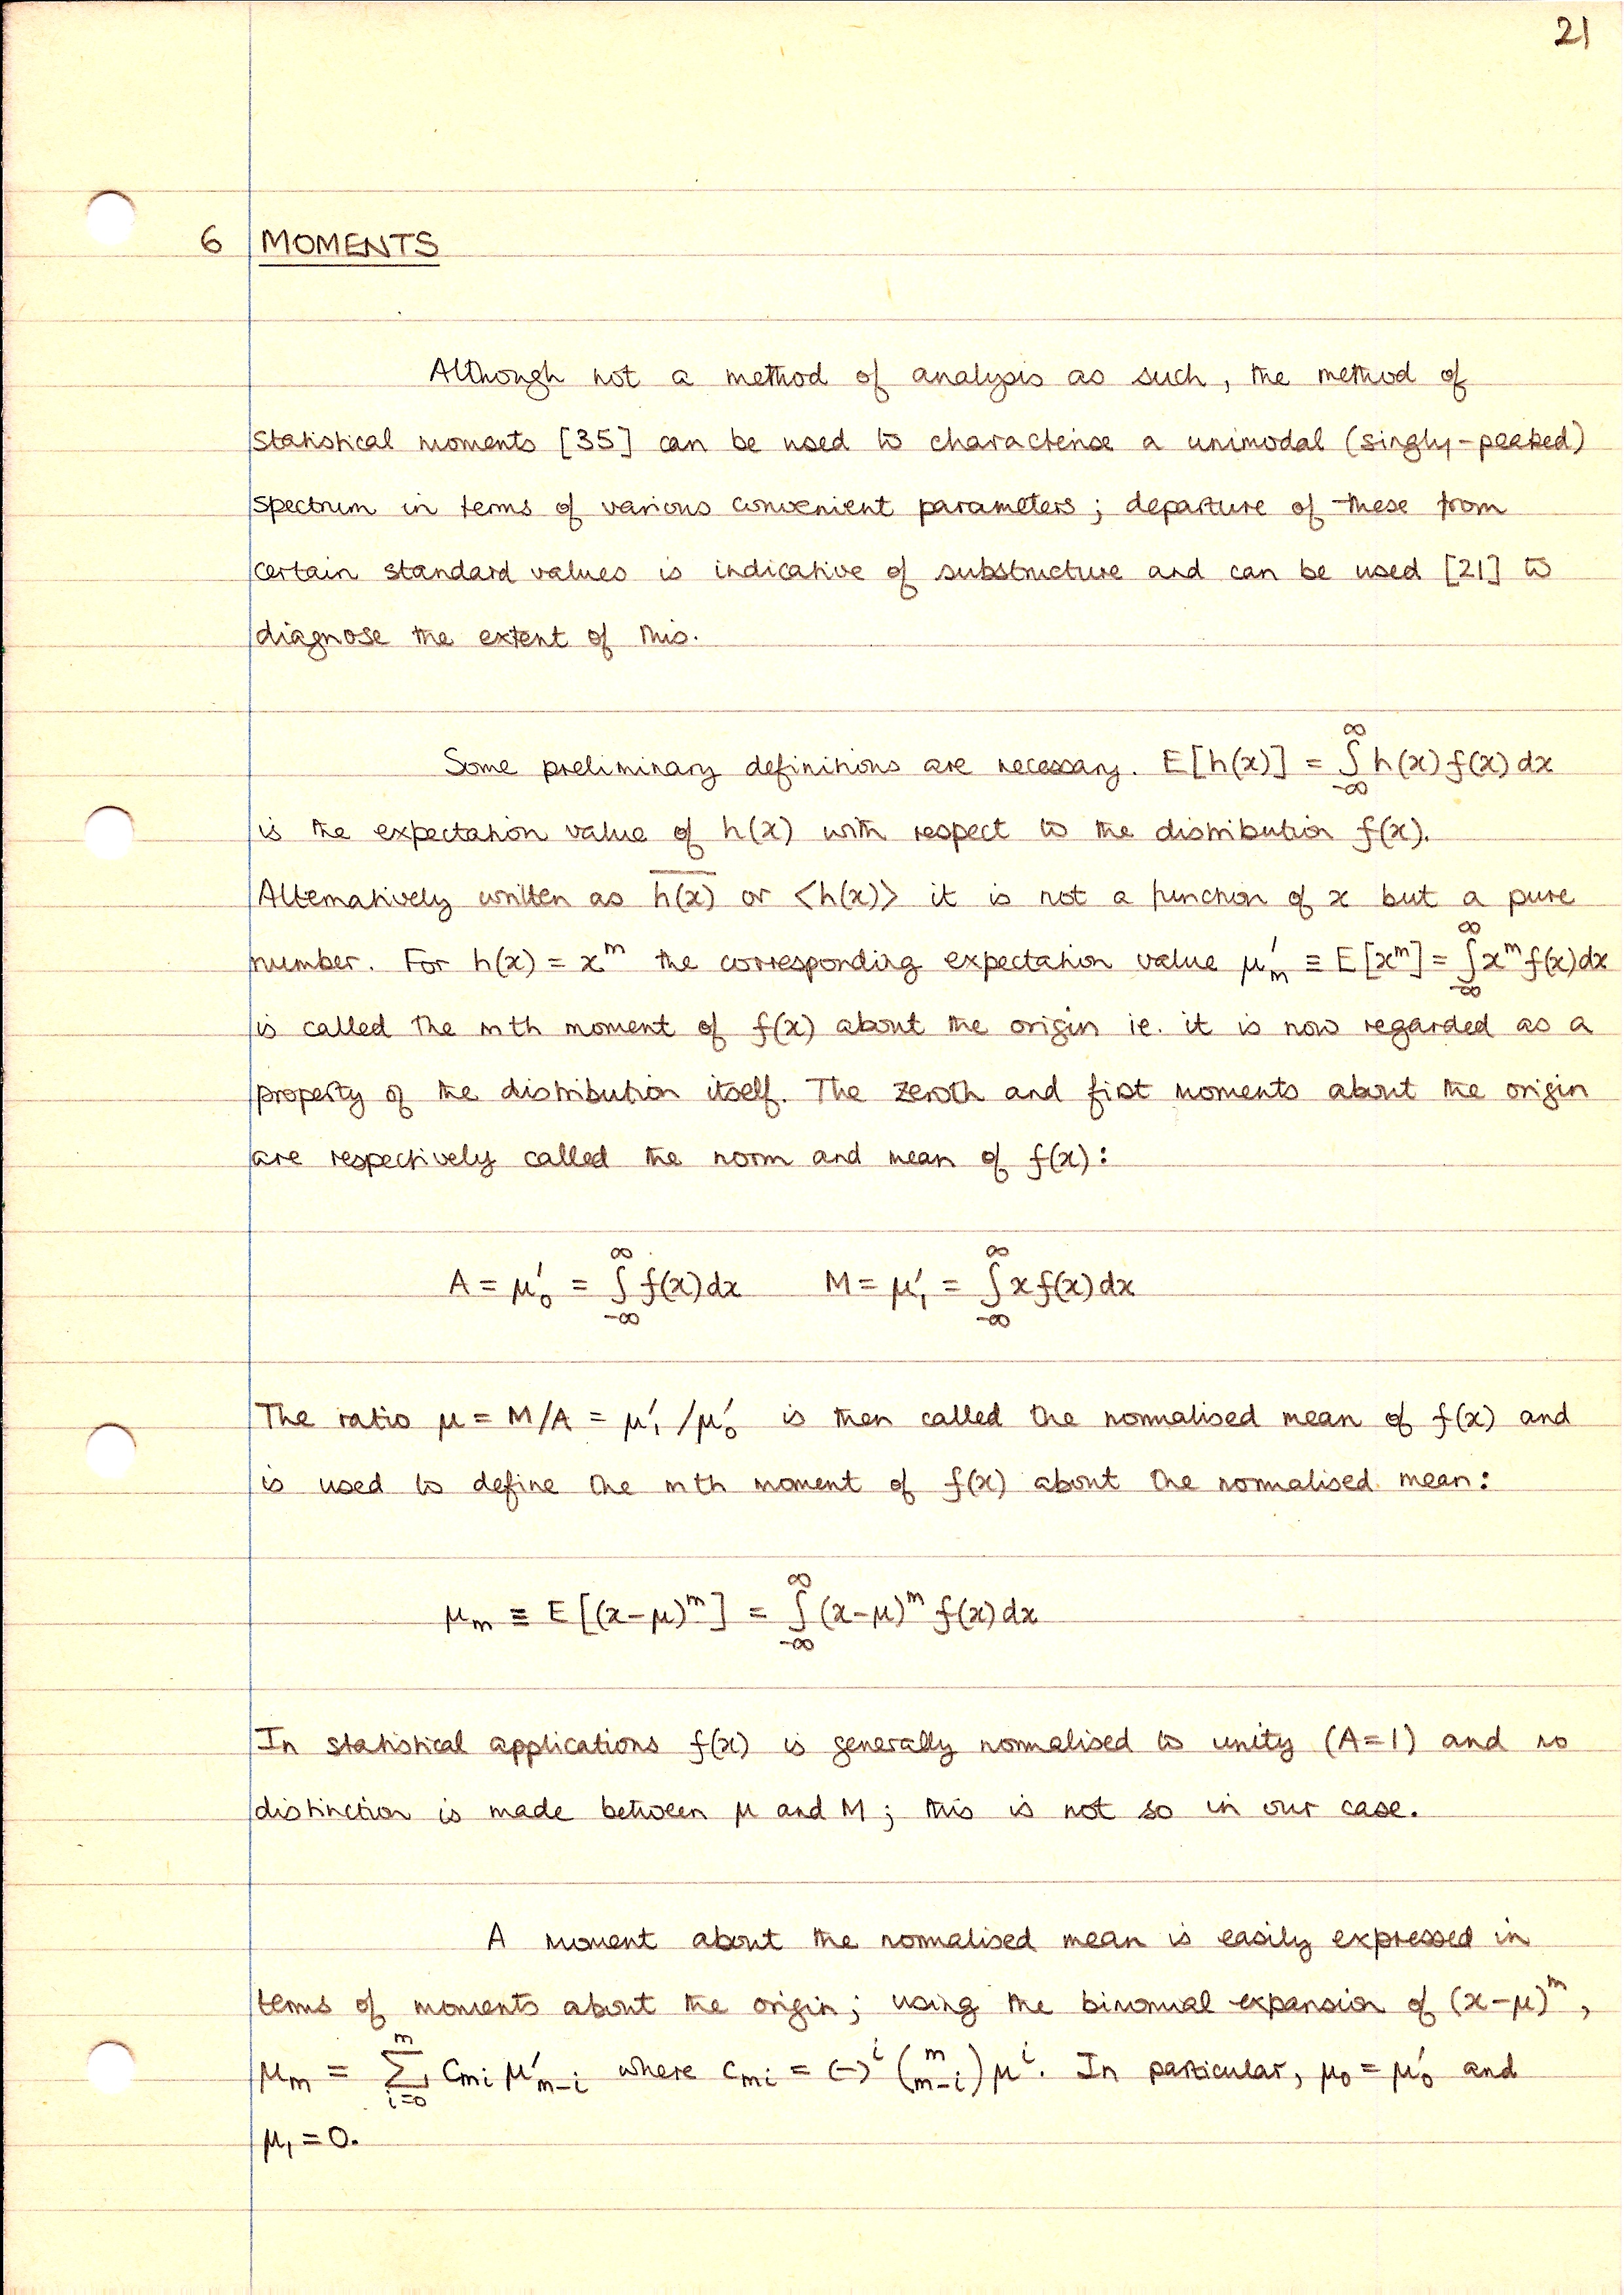 21
6 MOMENTS
Although not a method of analysis as such, the method of
statistical moments [35] can be used to characterise a unimodal (singly-peaked)
spectrum in terms of various convenient parameters; departure of these from
certain standard values is indicative of substructure and can be used [21] to
diagnose the extent of this.
Some preliminary definitions are necessary. E[h(x)] = ∫_{-∞}^{∞} h(x) f(x) dx
is the expectation value of h(x) with respect to the distribution f(x).
Alternatively written as \overline{h(x)} or <h(x)> it is not a function of x but a pure
number. For h(x) = x^m the corresponding expectation value μ'_m ≡ E[x^m] = ∫_{-∞}^{∞} x^m f(x) dx
is called the mth moment of f(x) about the origin ie. it is now regarded as a
property of the distribution itself. The zeroth and first moments about the origin
are respectively called the norm and mean of f(x):
A = μ'_0 = ∫_{-∞}^{∞} f(x) dx M = μ'_1 = ∫_{-∞}^{∞} x f(x) dx
The ratio μ = M/A = μ'_1 / μ'_0 is then called the normalised mean of f(x) and
is used to define the mth moment of f(x) about the normalised mean:
μ_m ≡ E[(x-μ)^m] = ∫_{-∞}^{∞} (x-μ)^m f(x) dx
In statistical applications f(x) is generally normalised to unity (A=1) and no
distinction is made between μ and M; this is not so in our case.
A moment about the normalised mean is easily expressed in
terms of moments about the origin; using the binomial expansion of (x-μ)^m,
μ_m = Σ_{i=0}^{m} c_{mi} μ'_{m-i} where c_{mi} = (-)^i (m over m-i) μ^i. In particular, μ_0 = μ'_0 and
μ_1 = 0.